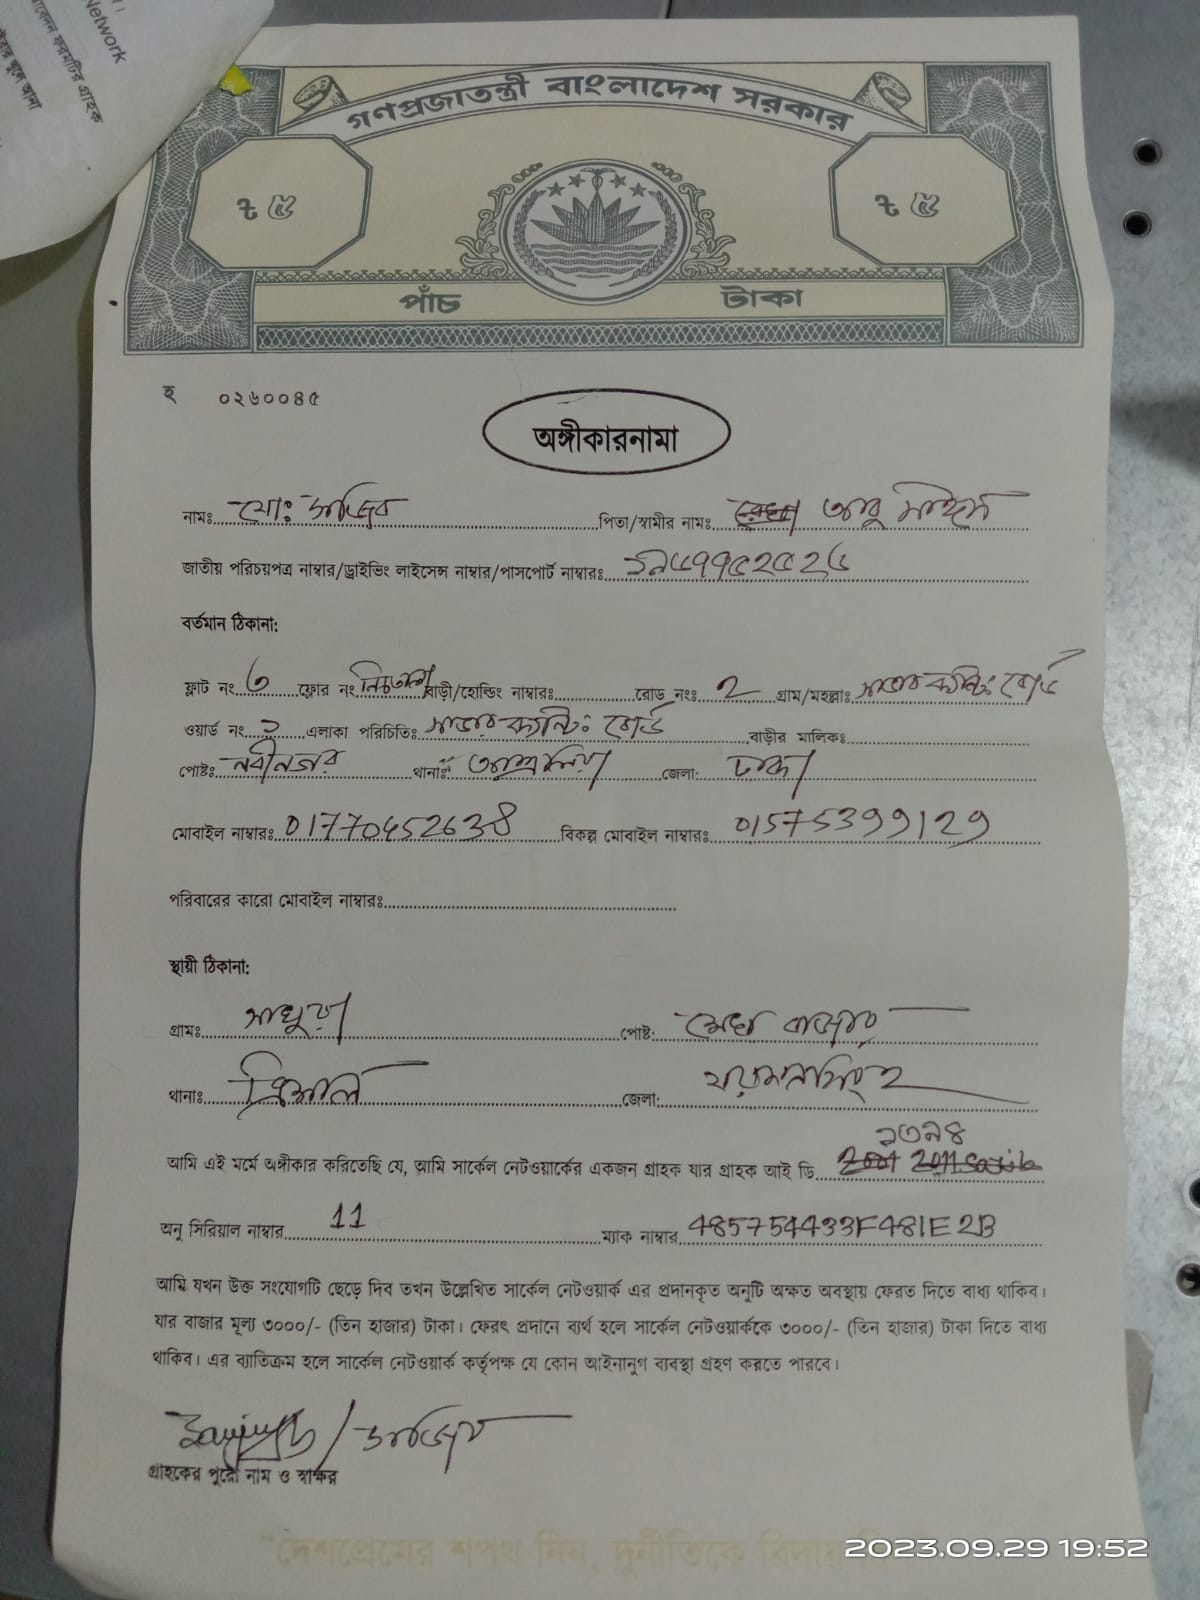 Network
আবেদন ফরমটির গ্রাহক
গণপ্রজাতন্ত্রী বাংলাদেশ সরকার
৳ ৫
৳ ৫
পাঁচ টাকা
হ ০২৬০০৪৫
অঙ্গীকারনামা
নামঃ মোঃ সজিব পিতা/স্বামীর নামঃ আবু সাঈদ
জাতীয় পরিচয়পত্র নাম্বার/ড্রাইভিং লাইসেন্স নাম্বার/পাসপোর্ট নাম্বারঃ
বর্তমান ঠিকানা:
ফ্লাট নং ৩ ফ্লোর নং নিচতলা বাড়ী/হোল্ডিং নাম্বারঃ রোড নংঃ 2 গ্রাম/মহল্লাঃ সাভার ক্যান্টিঃ বোর্ড
ওয়ার্ড নং ১ এলাকা পরিচিতিঃ সাভার ক্যান্টিঃ বোর্ড বাড়ীর মালিকঃ
পোষ্টঃ নবীনগর থানাঃ আশুলিয়া জেলা: ঢাকা
মোবাইল নাম্বারঃ বিকল্প মোবাইল নাম্বারঃ 01575399129
পরিবারের কারো মোবাইল নাম্বারঃ
স্থায়ী ঠিকানা:
গ্রামঃ পোষ্ট: বাজার
থানাঃ ত্রিশাল জেলা: ময়মনসিংহ
১৩৯৪
আমি এই মর্মে অঙ্গীকার করিতেছি যে, আমি সার্কেল নেটওয়ার্কের একজন গ্রাহক যার গ্রাহক আই ডি
অনু সিরিয়াল নাম্বার 11 ম্যাক নাম্বার 485754433F481E2B
আমি যখন উক্ত সংযোগটি ছেড়ে দিব তখন উল্লেখিত সার্কেল নেটওয়ার্ক এর প্রদানকৃত অনুটি অক্ষত অবস্থায় ফেরত দিতে বাধ্য থাকিব।
যার বাজার মূল্য ৩০০০/- (তিন হাজার) টাকা। ফেরৎ প্রদানে ব্যর্থ হলে সার্কেল নেটওয়ার্ককে ৩০০০/- (তিন হাজার) টাকা দিতে বাধ্য
থাকিব। এর ব্যতিক্রম হলে সার্কেল নেটওয়ার্ক কর্তৃপক্ষ যে কোন আইনানুগ ব্যবস্থা গ্রহণ করতে পারবে।
/ সজিব
গ্রাহকের পুরো নাম ও স্বাক্ষর
"দেশপ্রেমের শপথ নিন, দুর্নীতিকে বিদায়
2023.09.29 19:52